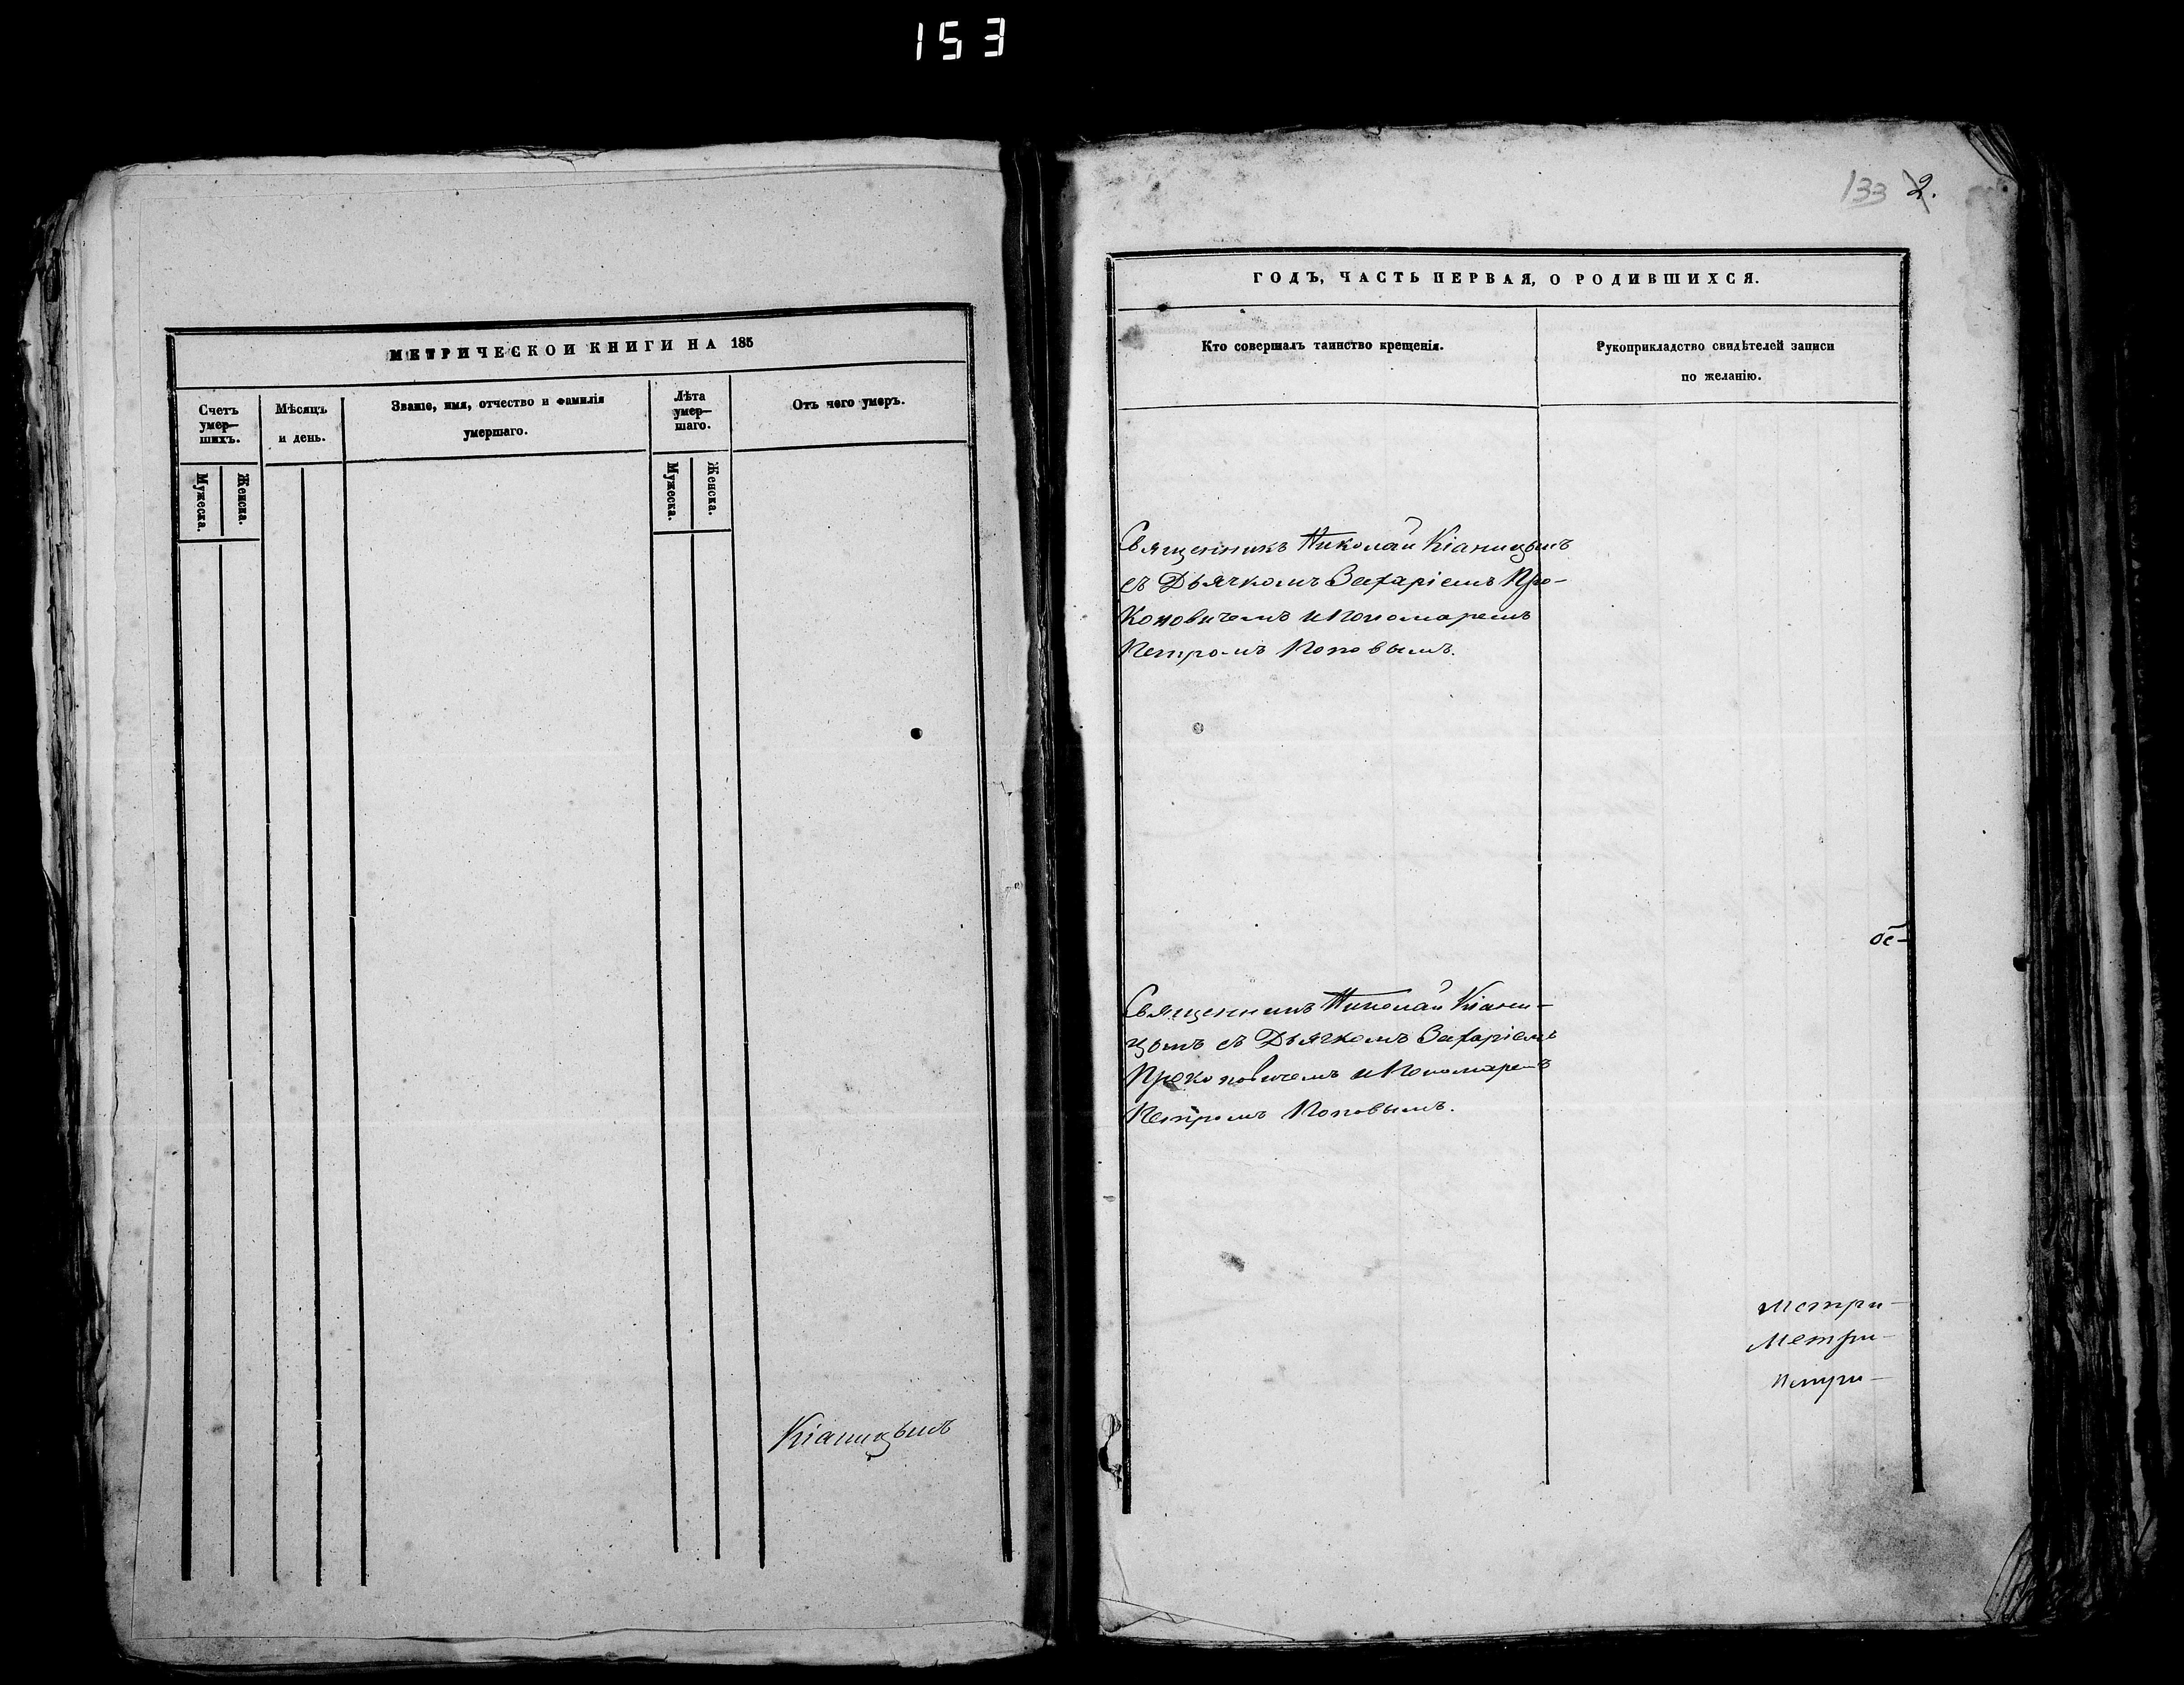 153
МЕТРИЧЕСКОИ КНИГИ НА 185
Счетъ умер—шихъ.
Мѣсяцъ и день.
Званіе, имя, отчество и фамилія умершаго.
Лѣта умер—шаго.
Отъ чего умеръ.
Мужеска.
Женска.
Мужеска.
Женска.
Кіаницынъ
133 2.
ГОДЪ, ЧАСТЬ ПЕРВАЯ, О РОДИВШИХСЯ.
Кто совершалъ таинство крещенія.
Рукоприкладство свидѣтелей записи
по желанію.
Священникъ Николай Кіаницынъ
съ Дьячкомъ Захаріемъ Про-
коповичемъ и Пономаремъ
Петромъ Поповымъ.
Священникъ Николай Кіани-
цынъ съ Дьячкомъ Захаріемъ
Прокоповичемъ и Пономаремъ
Петромъ Поповымъ.
Метри-
Метри-